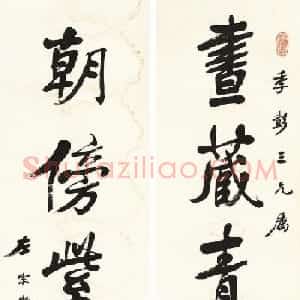 季彭三兄屬
晝藏青
朝傍紫
左宗
Shufaziliao.com